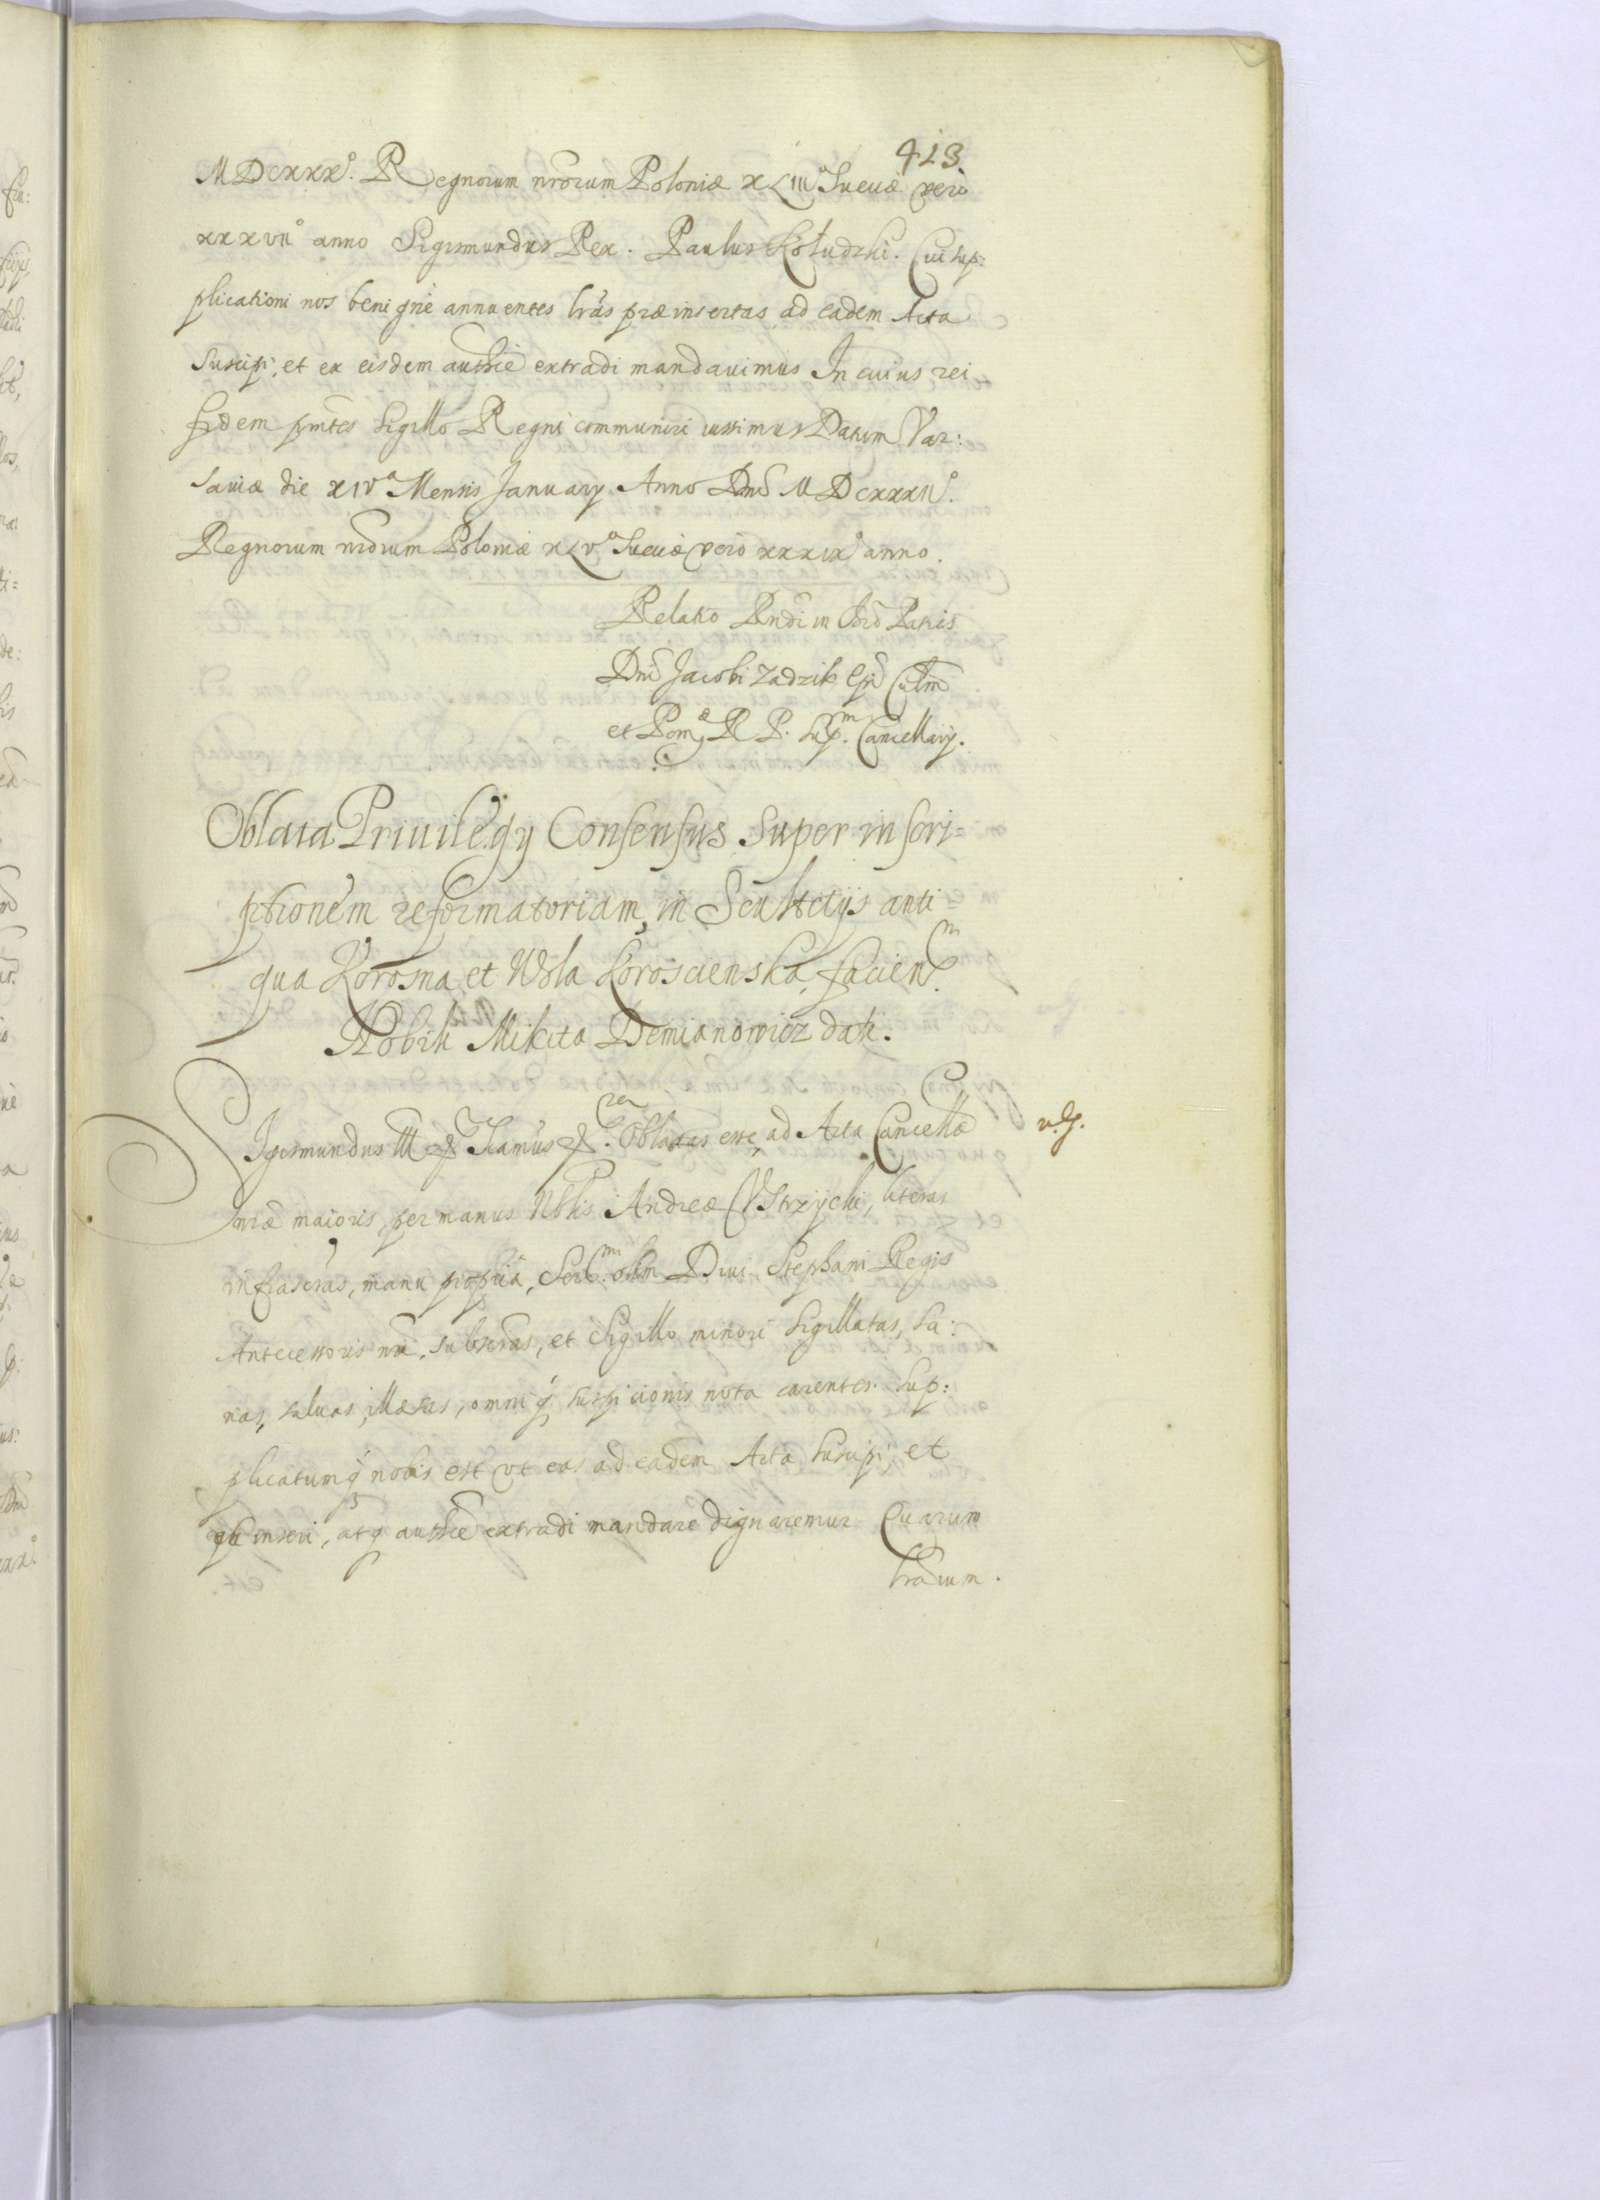 413
MDCXXX°. Regnorum nrorum Poloniæ XLIII° Sueciæ vero
XXXVII° anno Sigismundus Rex. Paulus Kołudzki. Cui sup:
plicationi nos benignè annuentes lras præinsertas ad eadem Acta
suscipi, et ex eisdem authce extradi mandauimus In cuius rei
fidem pntes Sigillo Regni communiri iussimus Datum Var:
sauiæ die XIVa Mensis January Anno Dni MDCXXXII°.
Regnorum nrorum Poloniæ XLV° Sueciæ vero XXXIX° anno.
Relatio Rndi in Chro Patris
Dni Jacobi Zadzik Epi Culm
et Pomæ R P. Sup.m Cancellarij.
Oblata Priuilegy Consensus super inscri=
ptionem reformatoriam, in Scultetijs anti=
qua Korosna et Wola Korosciensка, facien.m
Nobili Mikita Demianowicz dati.
Sigismundus III & Namus &. Oblatas esse, ad Acta Cancellæ
v. G.
nræ maioris, per manus Nblis Andreæ Vstrzycki, literas
infrascras, manu propria, Ser.mi olim Diui Stephani Regis
Antecessoris nri, subscras, et Sigillo minori sigillatas, sa:
nas, saluas, illæsas, omniq suspicionis nota carentes. Sup:
plicatumq nobis est vt eas ad eadem Acta suscipi, et
inseri, atq authce extradi mandare dignaremur Quarum
lrarum.